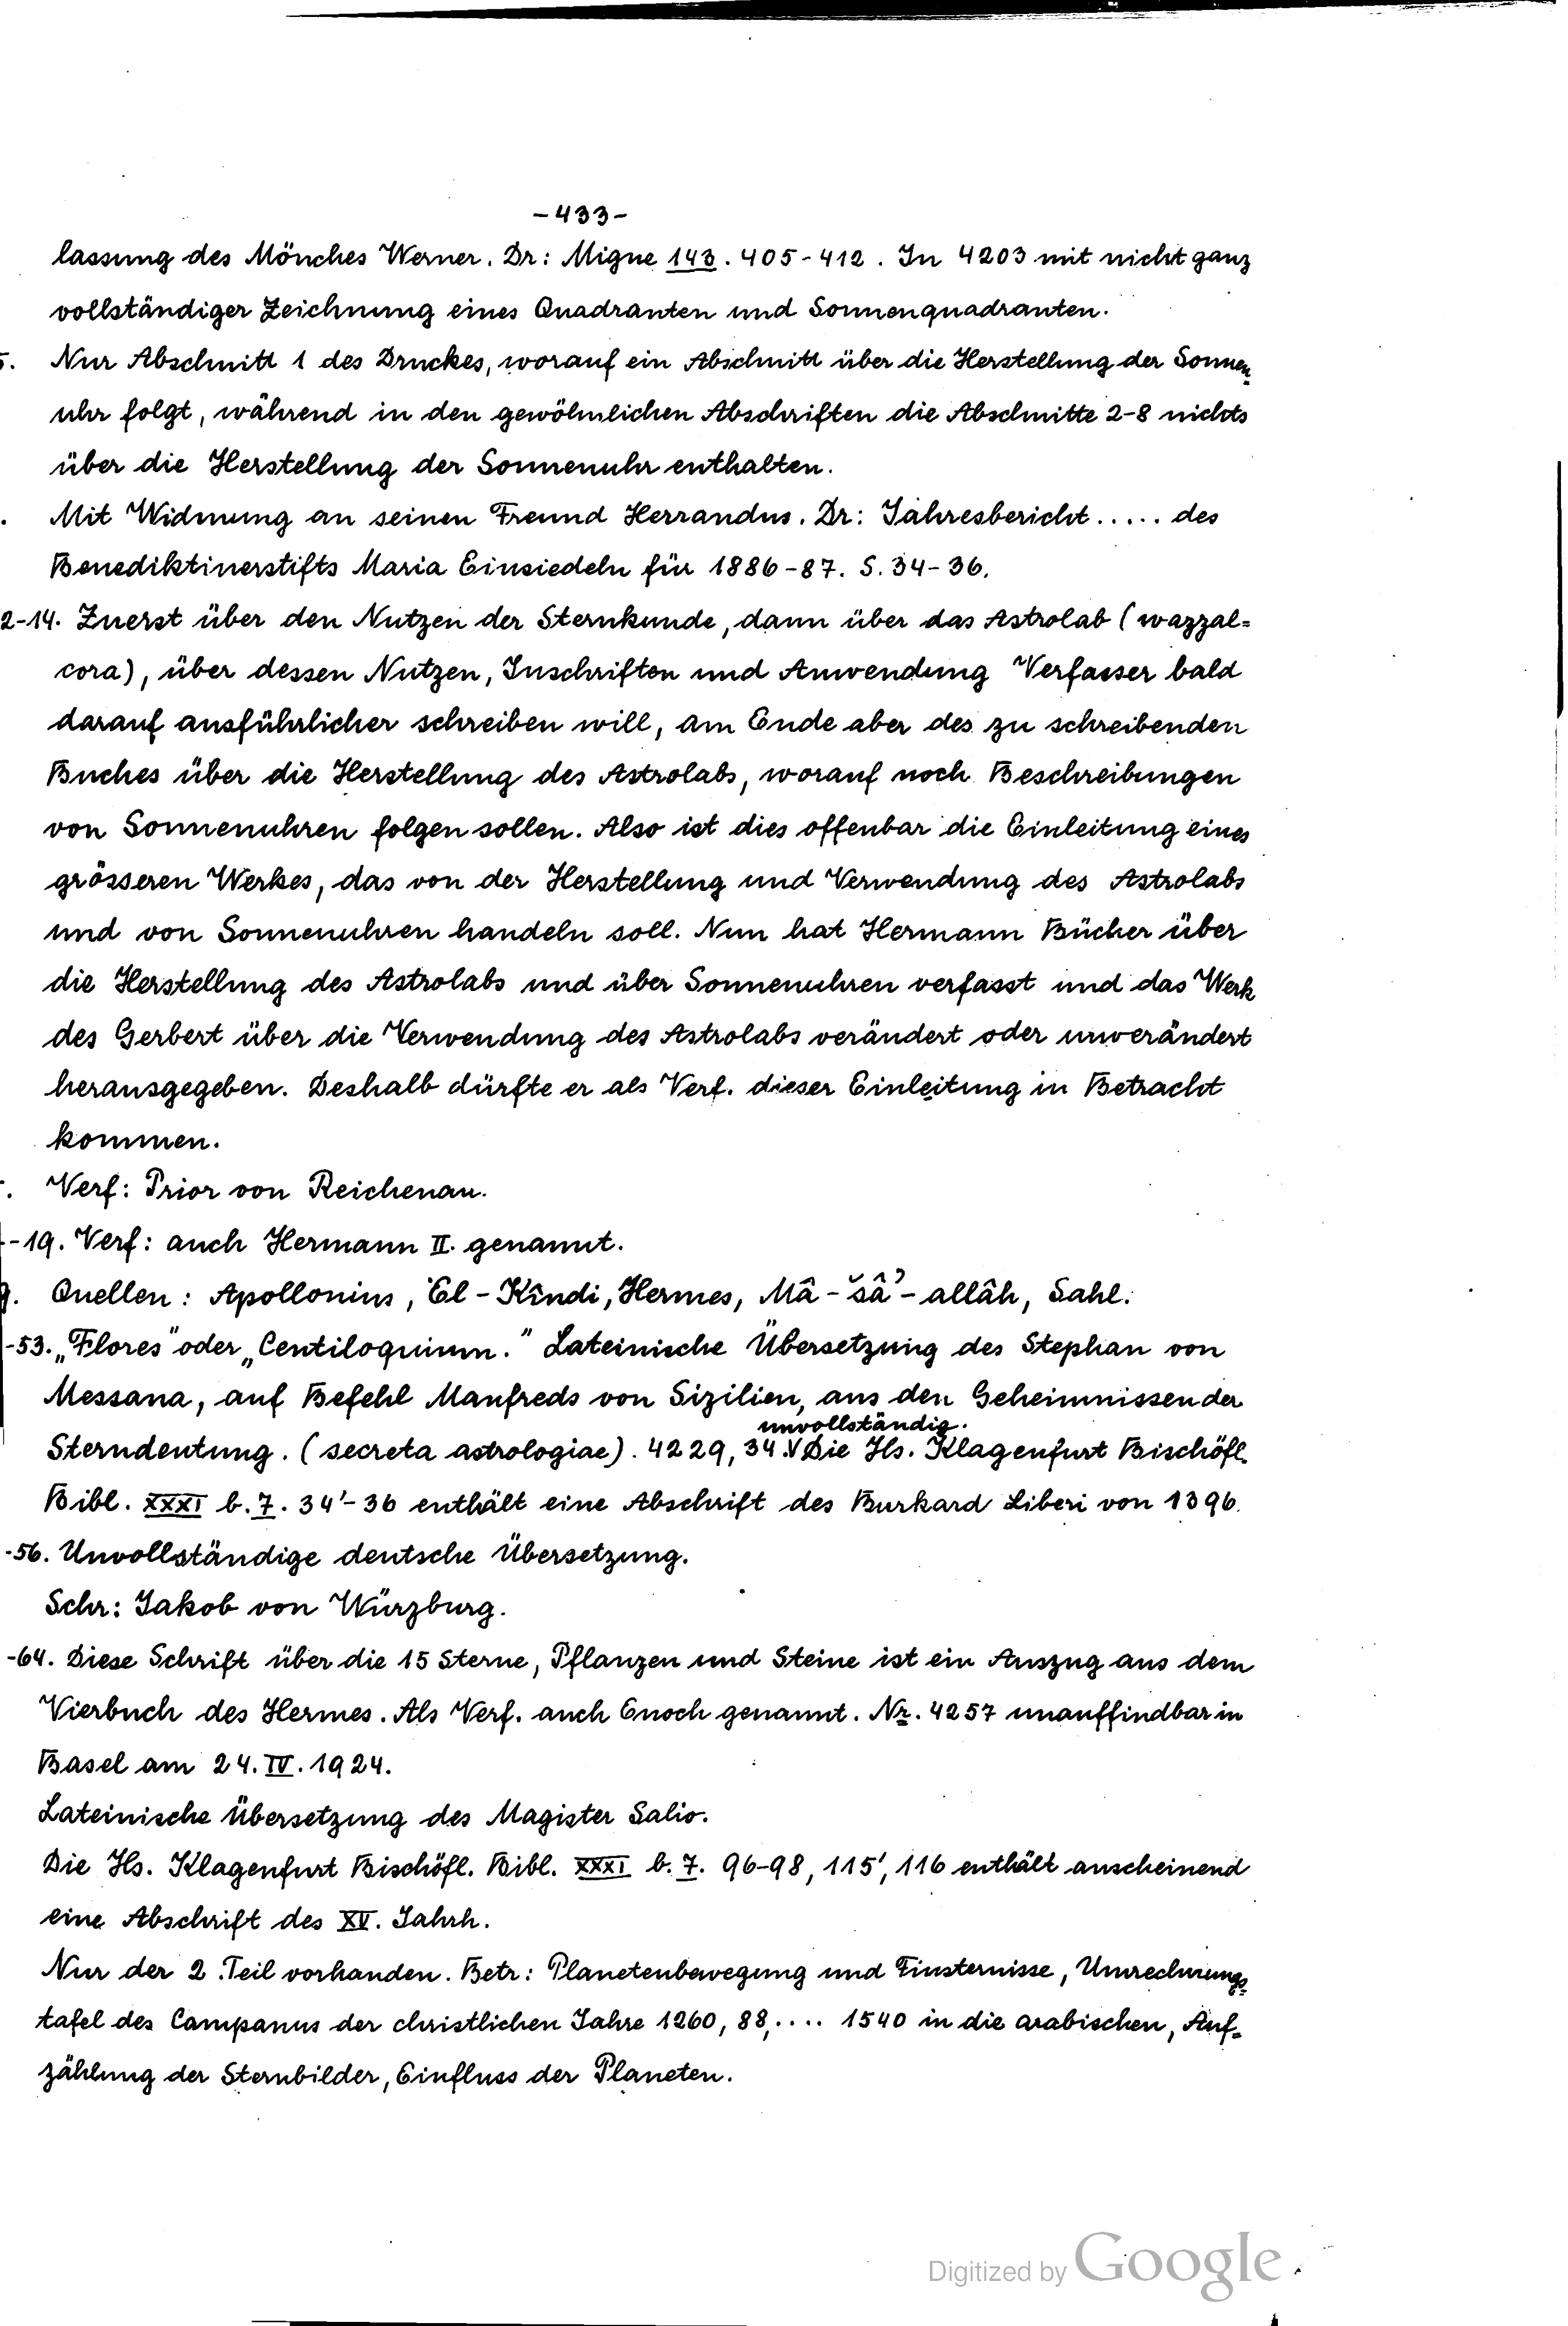 -433-
lassung des Mönches Werner. Dr: Migne 143. 405-412. In 4203 mit nicht ganz
vollständiger Zeichnung eines Quadranten und Sonnenquadranten.
5. Nur Abschnitt 1 des Druckes, worauf ein Abschnitt über die Herstellung der Sonnen=
uhr folgt, während in den gewöhnlichen Abschriften die Abschnitte 2-8 nichts
über die Herstellung der Sonnenuhr enthalten.
. Mit Widmung an seinen Freund Herrandus. Dr: Jahresbericht ..... des
Benediktinerstifts Maria Einsiedeln für 1886-87. S. 34-36.
2-14. Zuerst über den Nutzen der Sternkunde, dann über das Astrolab (wazzal=
cora), über dessen Nutzen, Inschriften und Anwendung Verfasser bald
darauf ausführlicher schreiben will, am Ende aber des zu schreibenden
Buches über die Herstellung des Astrolabs, worauf noch Beschreibungen
von Sonnenuhren folgen sollen. Also ist dies offenbar die Einleitung eines
grösseren Werkes, das von der Herstellung und Verwendung des Astrolabs
und von Sonnenuhren handeln soll. Nun hat Hermann Bücher über
die Herstellung des Astrolabs und über Sonnenuhren verfasst und das Werk
des Gerbert über die Verwendung des Astrolabs verändert oder unverändert
herausgegeben. Deshalb dürfte er als Verf. dieser Einleitung in Betracht
kommen.
. Verf: Prior von Reichenau.
-19. Verf: auch Hermann II. genannt.
. Quellen: Apollonius, El-Kîndi, Hermes, Mâ-šâ'-allâh, Sahl.
-53. „Flores" oder „Centiloquium." Lateinische Übersetzung des Stephan von
Messana, auf Befehl Manfreds von Sizilien, aus den Geheimnissen der
unvollständig.
Sterndeutung. (secreta astrologiae). 4229, 34. V Die Hs. Klagenfurt Bischöfl.
Bibl. XXXI b. 7. 34'-36 enthält eine Abschrift des Burkard Liberi von 1396.
-56. Unvollständige deutsche Übersetzung.
Schr: Jakob von Würzburg.
-64. Diese Schrift über die 15 Sterne, Pflanzen und Steine ist ein Auszug aus dem
Vierbuch des Hermes. Als Verf. auch Enoch genannt. Nr. 4257 unauffindbar in
Basel am 24. IV. 1924.
Lateinische Übersetzung des Magister Salio.
Die Hs. Klagenfurt Bischöfl. Bibl. XXXI b. 7. 96-98, 115', 116 enthält anscheinend
eine Abschrift des XV. Jahrh.
Nur der 2. Teil vorhanden. Betr: Planetenbewegung und Finsternisse, Umrechnungs=
tafel des Campanus der christlichen Jahre 1260, 88, .... 1540 in die arabischen, Auf=
zählung der Sternbilder, Einfluss der Planeten.
Digitized by Google